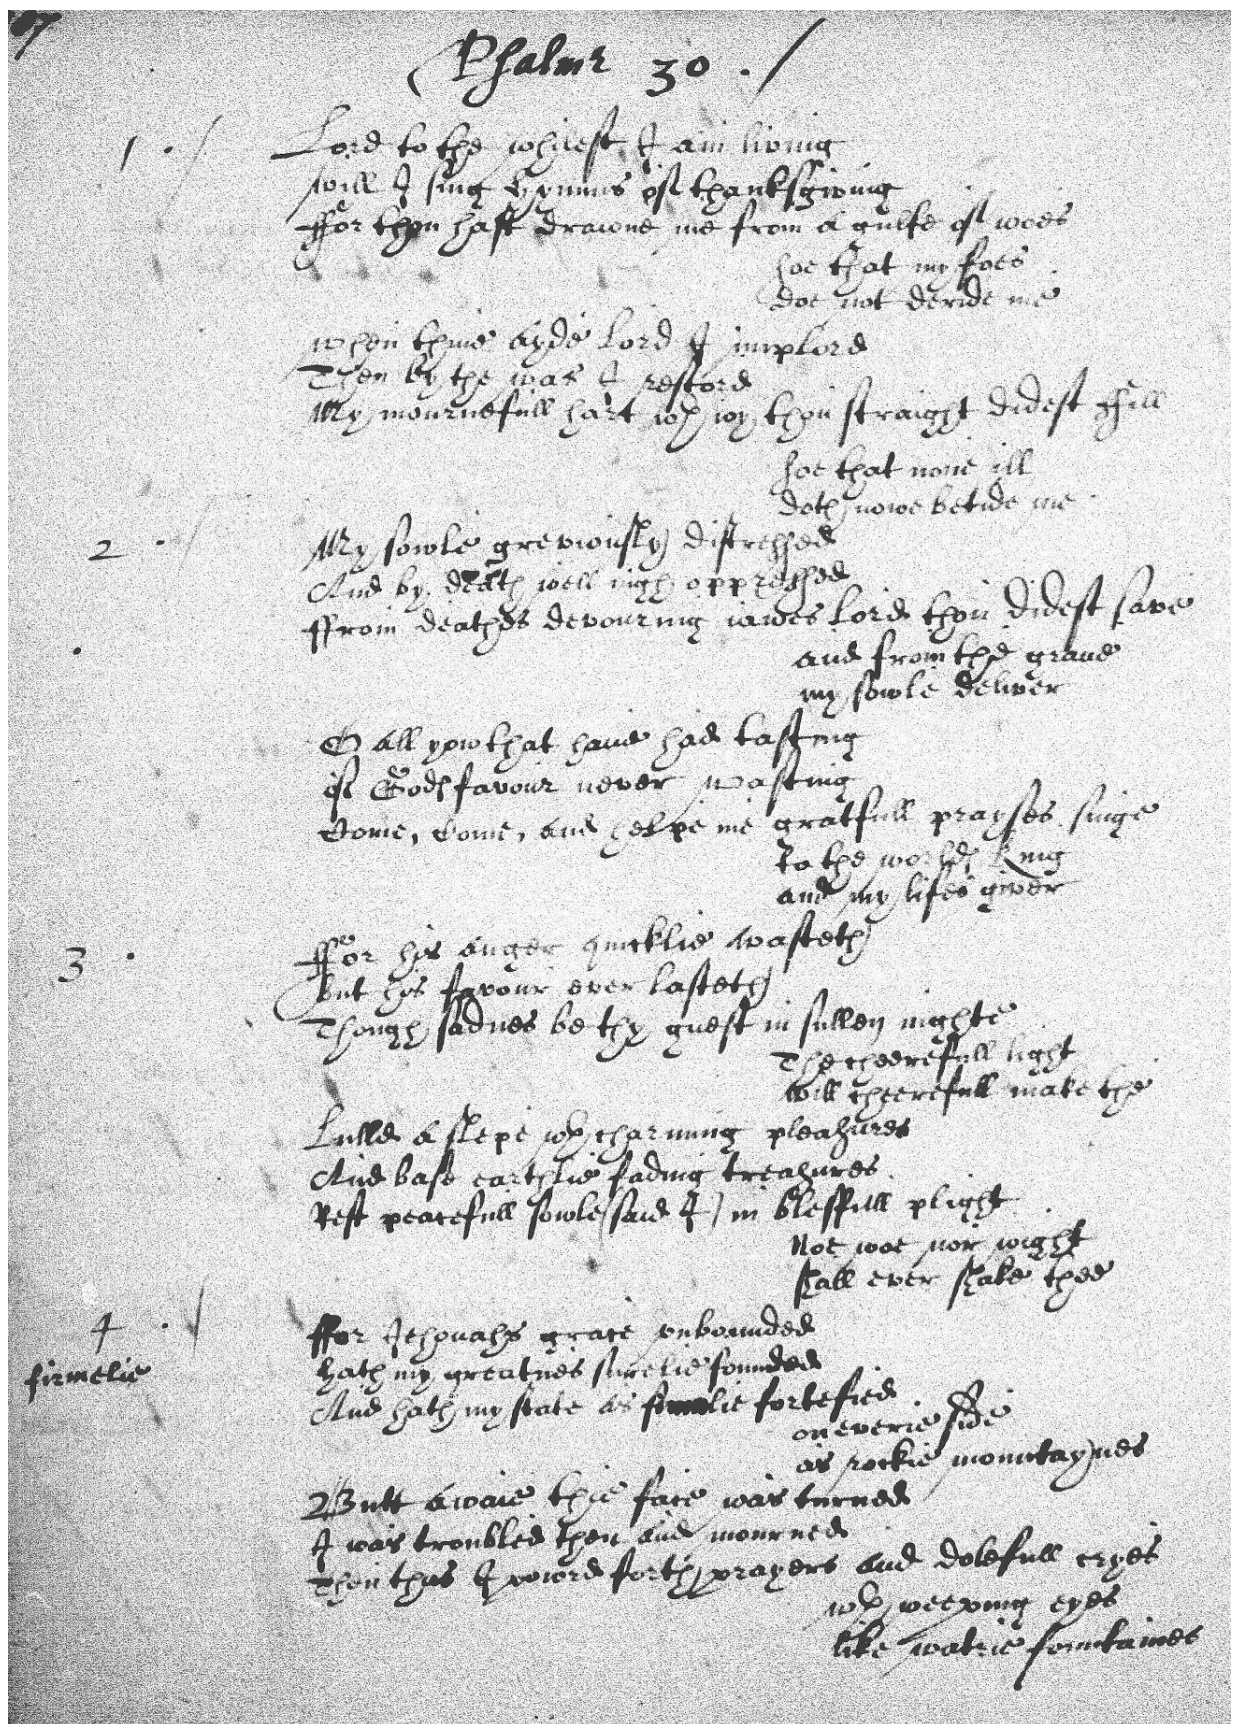 Psalme 30 ./
1 . / Lord to the whilest I am living
will I sing hymns of thanksgiving
ffor thou hast drawne me from a gulfe of woes
soe that my foes
doe not deride me
when thine ayde Lord I implord
Then by the was I restord
My mournefull hart wth ioy thou straight didest ffill
soe that none ill
doth nowe betide me
2 . / My sowle greviously distressed
And by death well nigh oppressed
ffrom deathes devouring iawes Lord thou didest save
and from the grave
my sowle deliver
O all yow that have had tasting
of Gods favour never wasting
Come, Come, and helpe me gratfull prayses singe
to the worlds King
and my lifes giver
3 . ffor his anger quicklie wasteth
but his favour ever lasteth
Though sadnes be thy guest in sullen nighte
The cheerefull light
will cheerefull make the
Lulld a slepe wth charming pleazures
And base earthlie fading treazures
Rest peacefull sowle (said I) in blessfull plight
Noe woe nor wight
shall ever shake thee
4 . / ffor Jehovahs grace vnbounded
hath my greatnes surelie founded
firmelie And hath my state as lie fortefied
on everie side
as rockie mountaynes
Butt awaie thie face was turned
I was troubled then and mourned
Then thus I powrd forth prayers and dolefull cryes
wth weeping eyes
like watrie fountaines